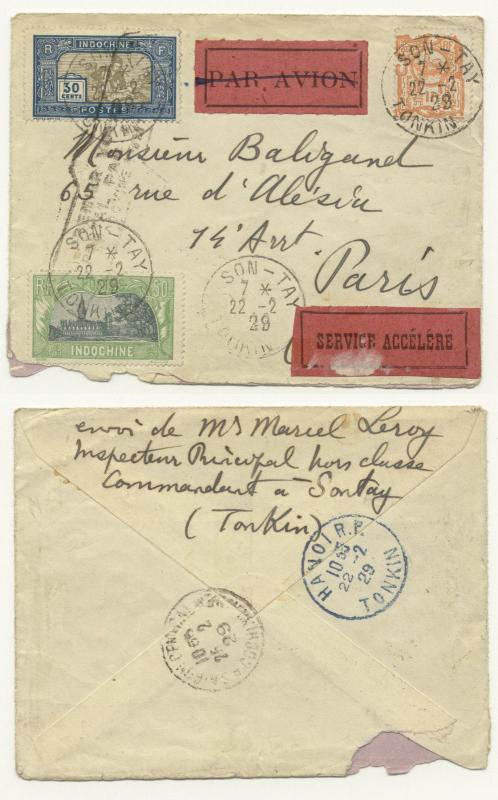 R F
INDOCHINE
30
CENTS
POSTES
PAR AVION
SON-TAY
7 *
22 -2
29
TONKIN
Monsieur Baligand
65 rue d'Alésia
14è Arrt
Paris
SON-TAY
7 *
22 -2
29
TONKIN
SON-TAY
7 *
22 -2
29
TONKIN
INDOCHINE
SERVICE ACCÉLÉRÉ
envoi de Mr Marcel Leroy
Inspecteur Principal hors classe
Commandant à Sontay
(Tonkin)
HANOI R.P.
10 35
22 -2
29
TONKIN
10
25
2
29